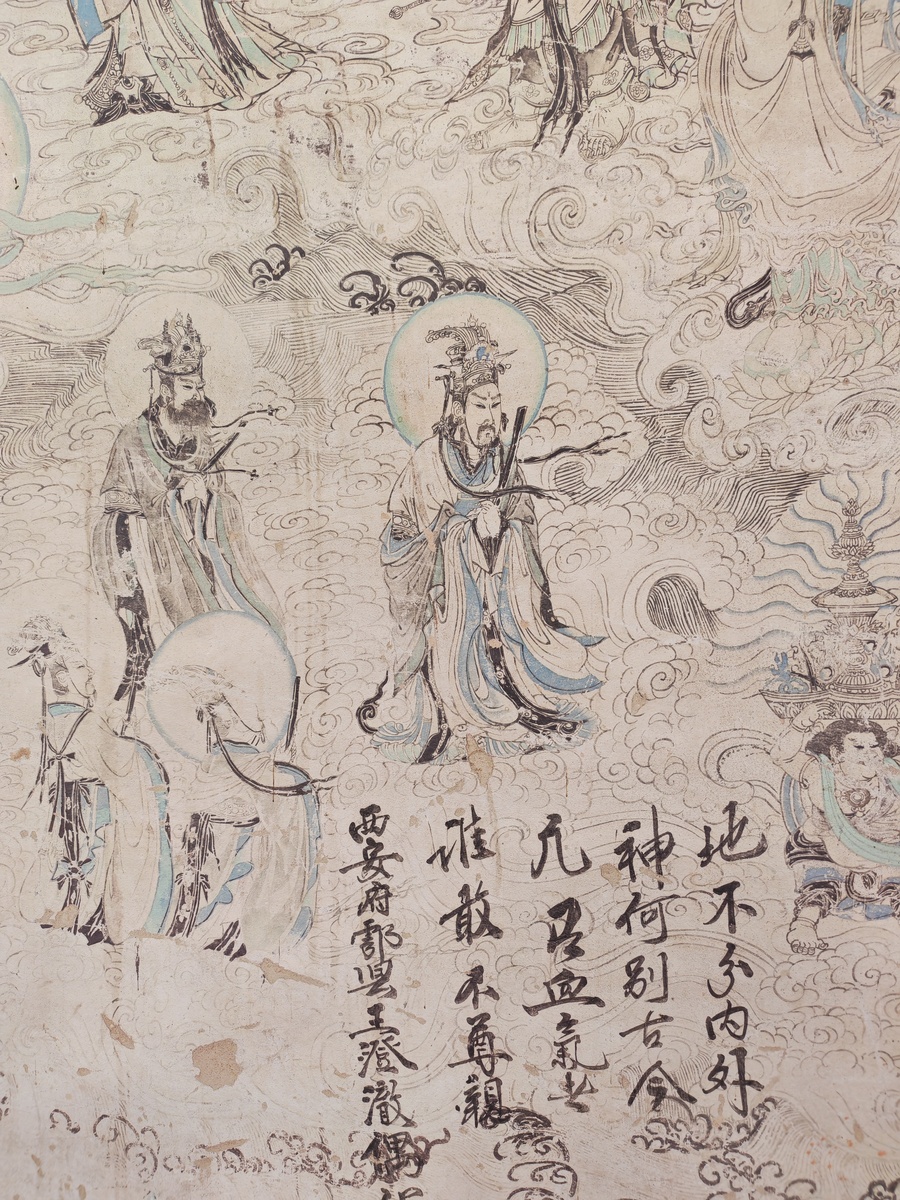 地不分内外
神何别古今
凡吕血氣者
谁敢不尊親
西安府鄠県王澄澈偶